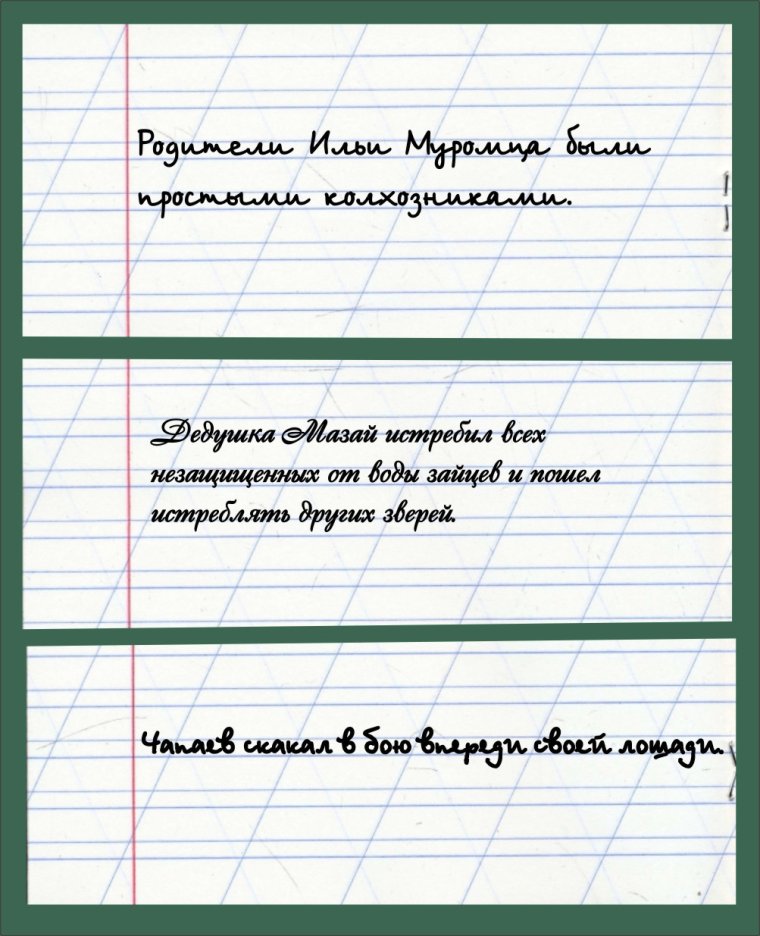 Родители Ильи Муромца были
простыми колхозниками.
Дедушка Мазай истребил всех
незащищенных от воды зайцев и пошел
истреблять других зверей.
Чапаев скакал в бою впереди своей лошади.